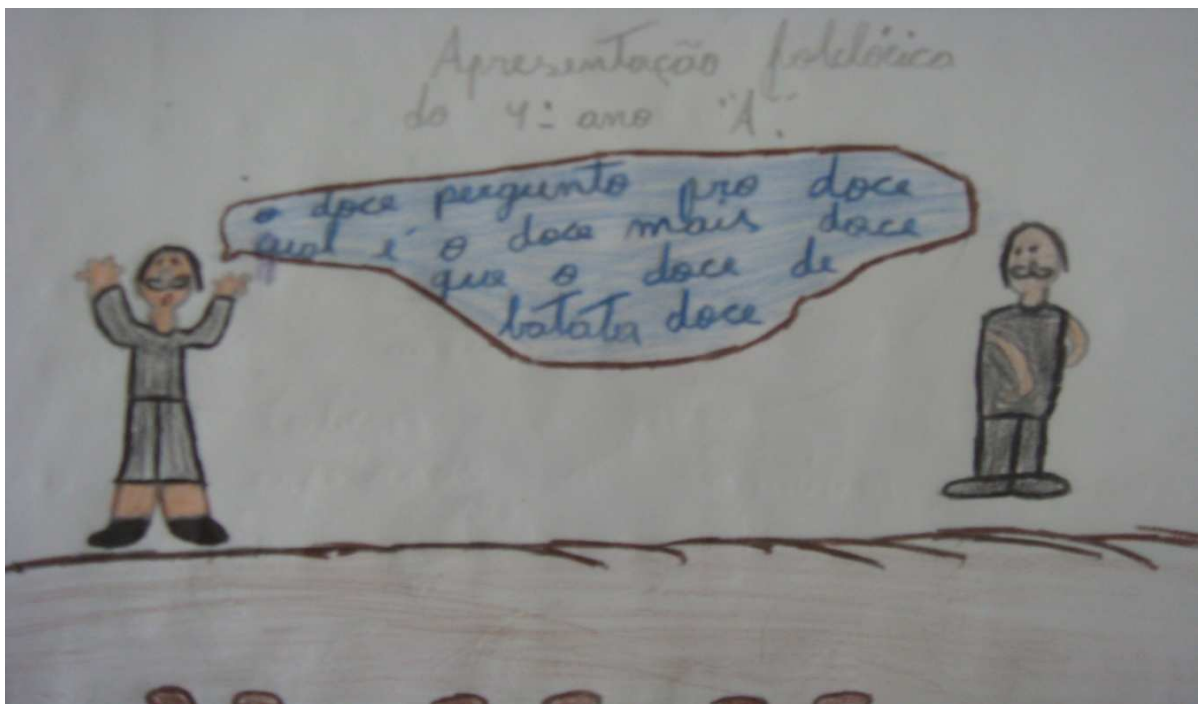 Apresentação folclórica
do 4º ano "A".
o doce pergunto pro doce
qual é o doce mais doce
que o doce de
batata doce